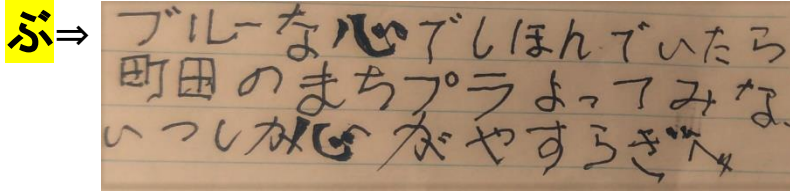 ぶ⇒
ブルーな心でしほんでいたら
町田のまちプラよってみな
いつしか心がやすらぎへ